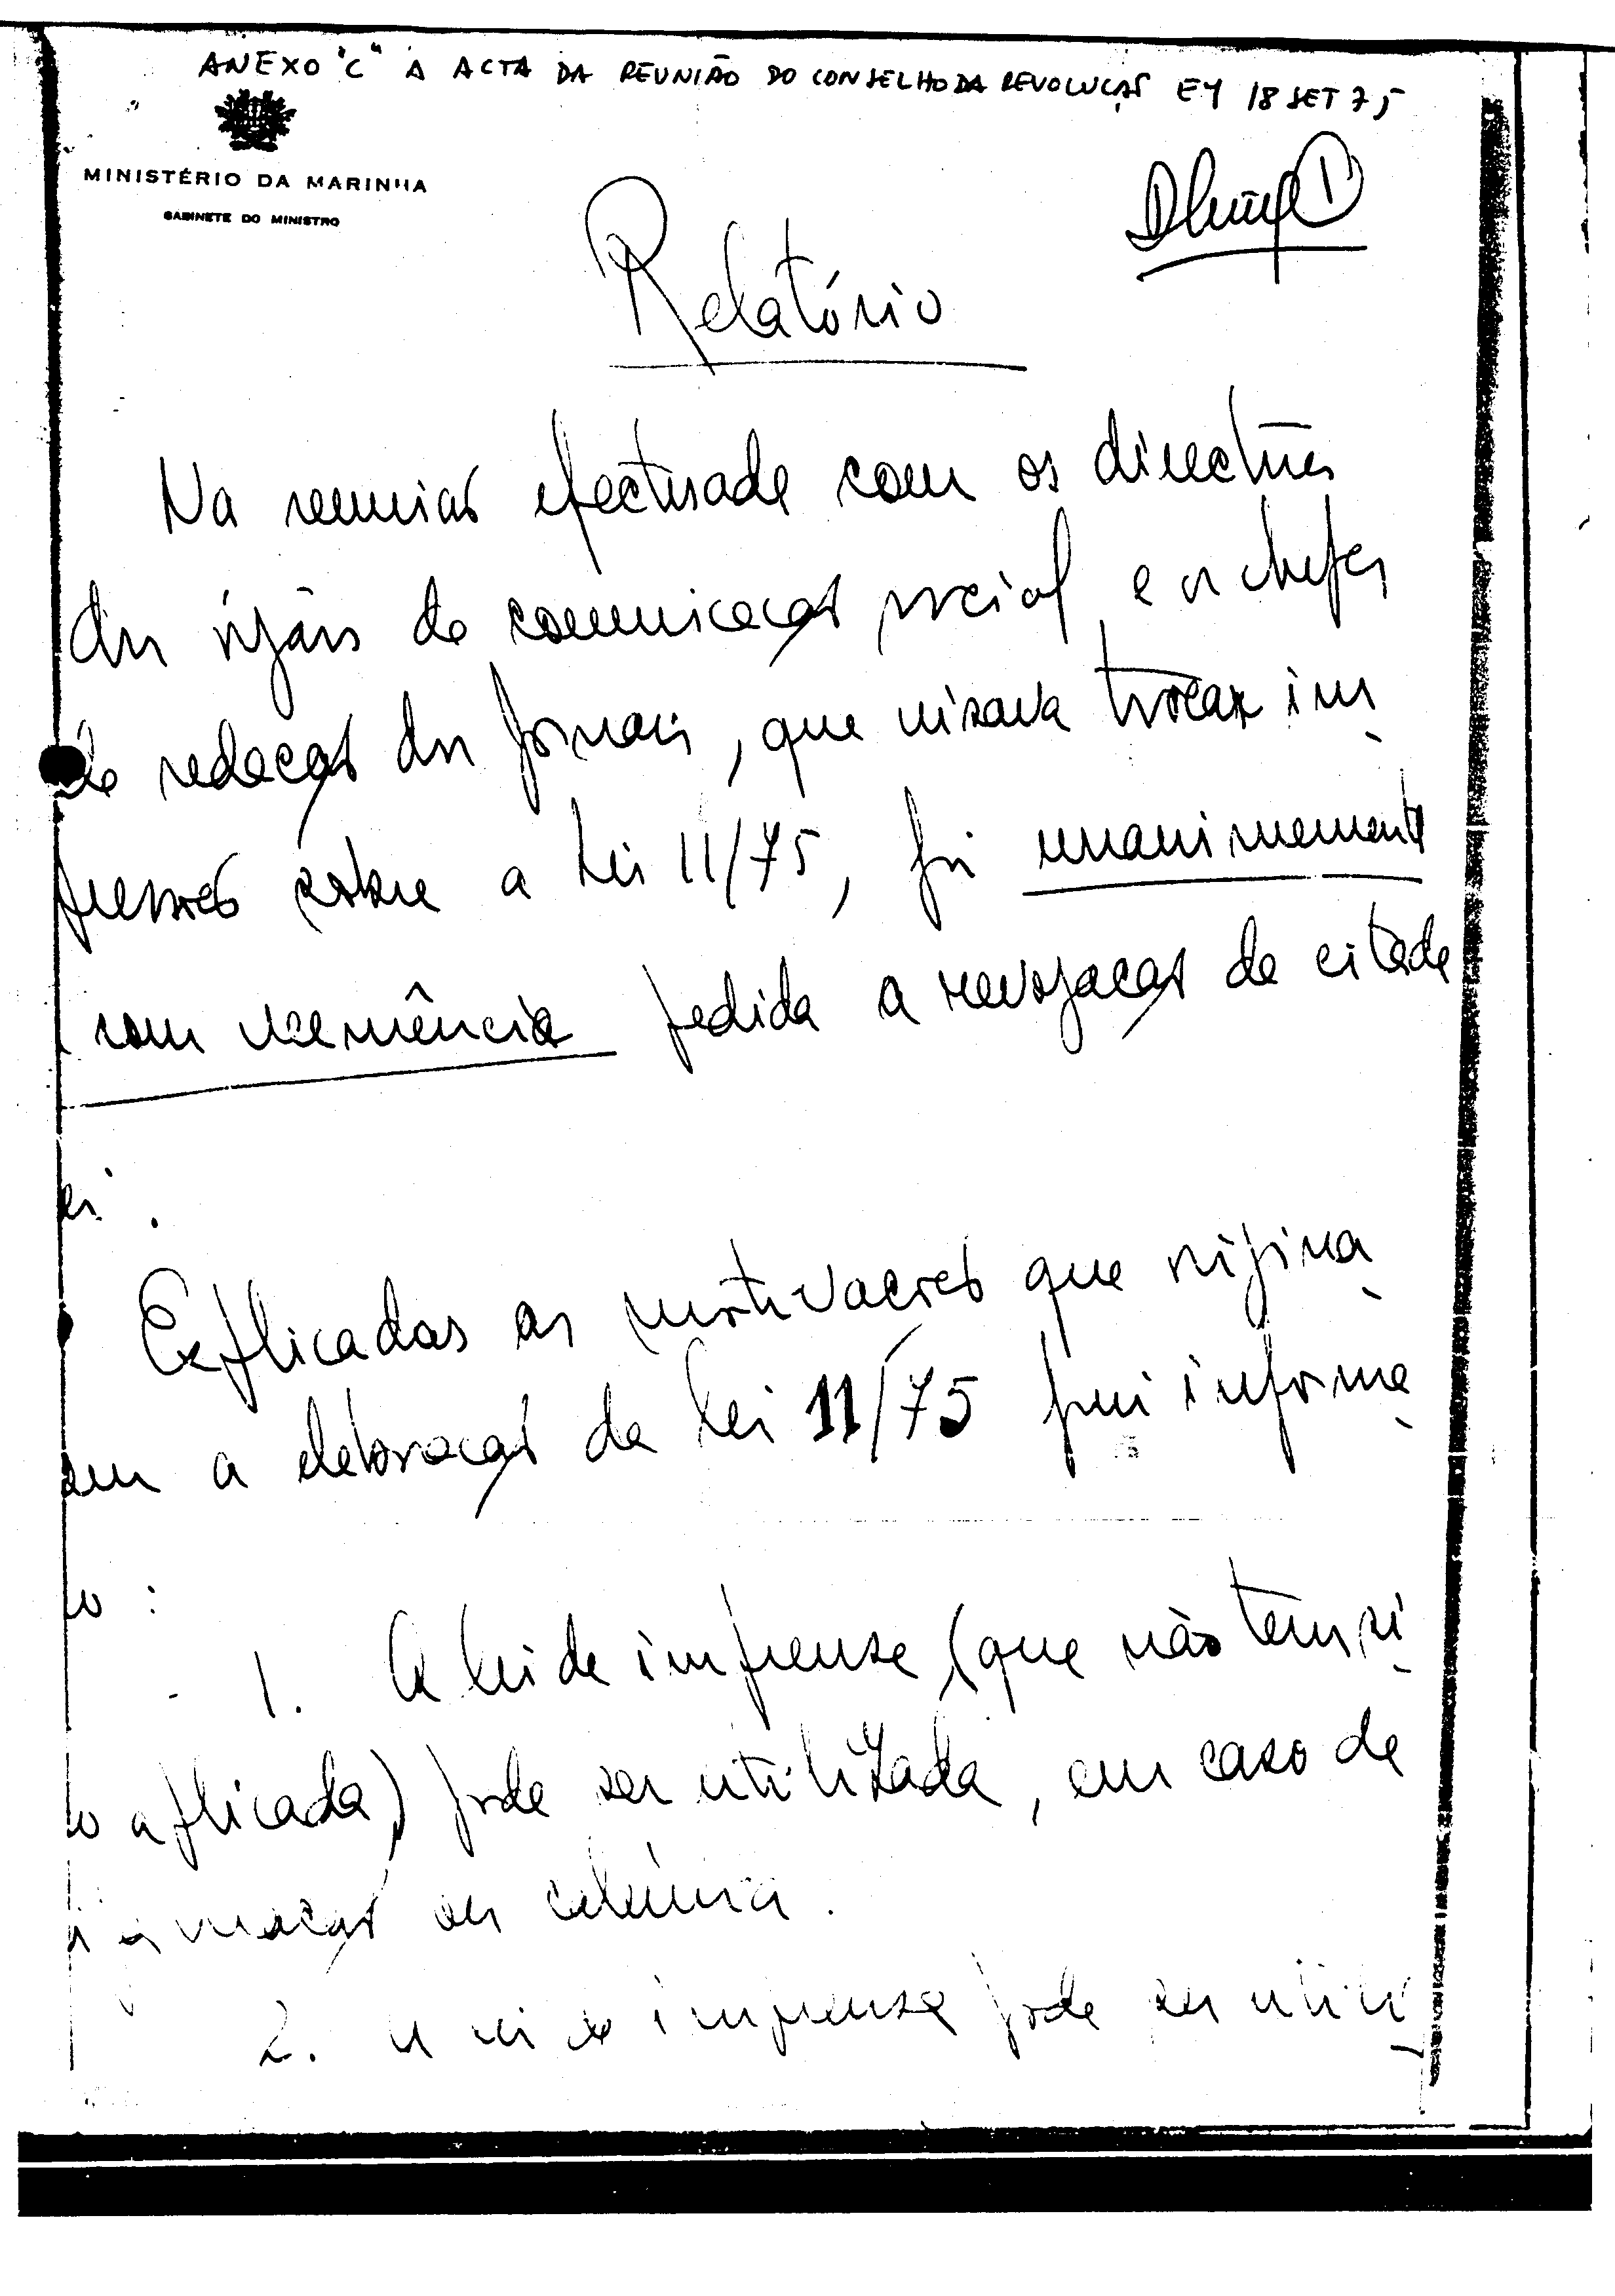 ANEXO "C" À ACTA DA REUNIÃO DO CONSELHO DA REVOLUÇÃO EM 18 SET 75
MINISTÉRIO DA MARINHA
GABINETE DO MINISTRO
1
Relatório
Na reunião efectuada com os directores
dos órgãos de comunicação social e os chefes
de redacção dos jornais, que visava trocar im-
pressões sobre a Lei 11/75, foi unanimemente
e com veemência pedida a revogação da citada
lei.
Explicadas as motivações que origina-
ram a elaboração da Lei 11/75 fui informa-
do:
1. A lei de imprensa (que não tem si-
do aplicada) pode ser utilizada, em caso de
difamação ou calúnia.
2. A lei de imprensa pode ser utili-